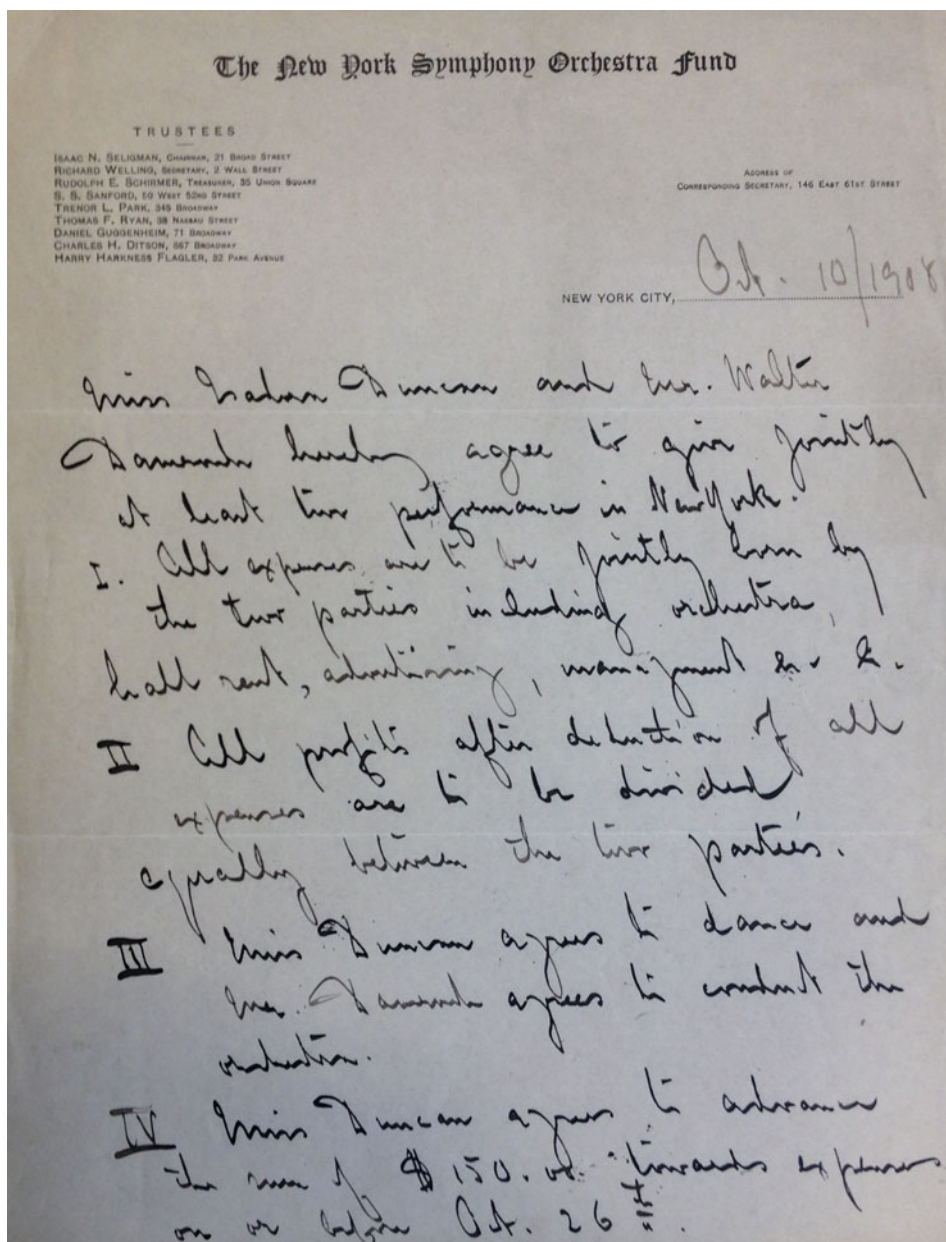 The New York Symphony Orchestra Fund
TRUSTEES
ISAAC N. SELIGMAN, CHAIRMAN, 21 BROAD STREET
RICHARD WELLING, SECRETARY, 2 WALL STREET
RUDOLPH E. SCHIRMER, TREASURER, 35 UNION SQUARE
S. S. SANFORD, 50 WEST 52ND STREET
TRENOR L. PARK, 345 BROADWAY
THOMAS F. RYAN, 38 NASSAU STREET
DANIEL GUGGENHEIM, 71 BROADWAY
CHARLES H. DITSON, 867 BROADWAY
HARRY HARKNESS FLAGLER, 32 PARK AVENUE
ADDRESS OF
CORRESPONDING SECRETARY, 146 EAST 61ST STREET
NEW YORK CITY, Oct. 10/1908
Miss Isadora Duncan and Mr. Walter
Damrosch hereby agree to give jointly
at least two performance in New York.
I. All expenses are to be jointly born by
the two parties including orchestra,
hall rent, advertising, management &c &c.
II All profits after deduction of all
expenses are to be divided
equally between the two parties.
III Miss Duncan agrees to dance and
Mr. Damrosch agrees to conduct the
orchestra.
IV Miss Duncan agrees to advance
the sum of $150.00 towards expenses
on or before Oct. 26th.